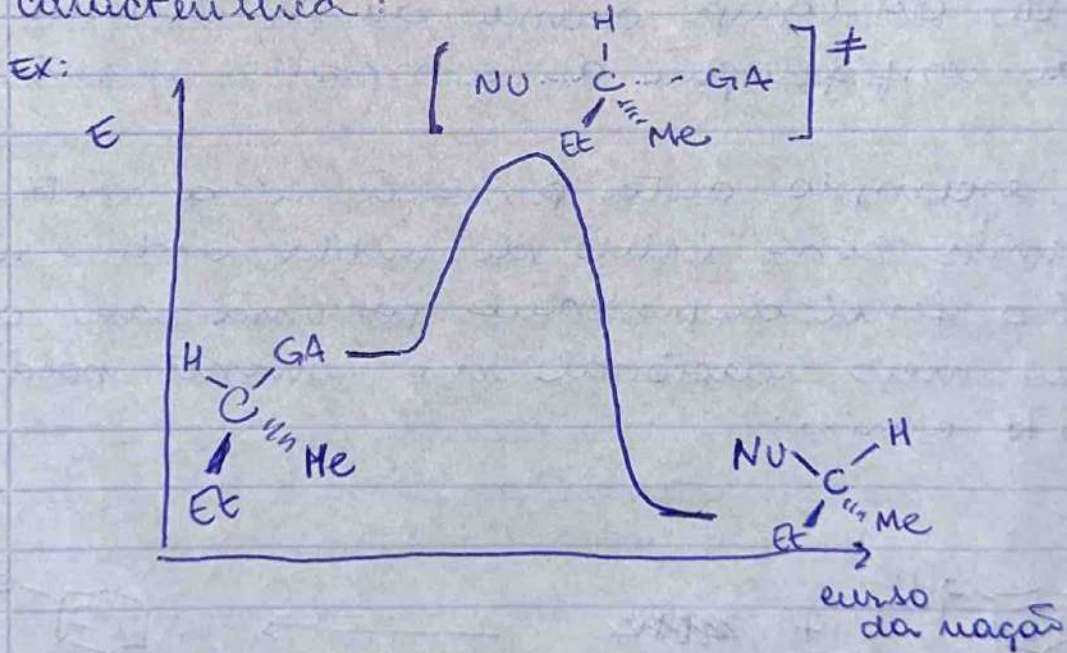 característica:
EX:
H
[ NU C ---- GA ] ≠
Et Me
E
H GA
C
Me
Et
NU H
C
Et Me
curso
da reação